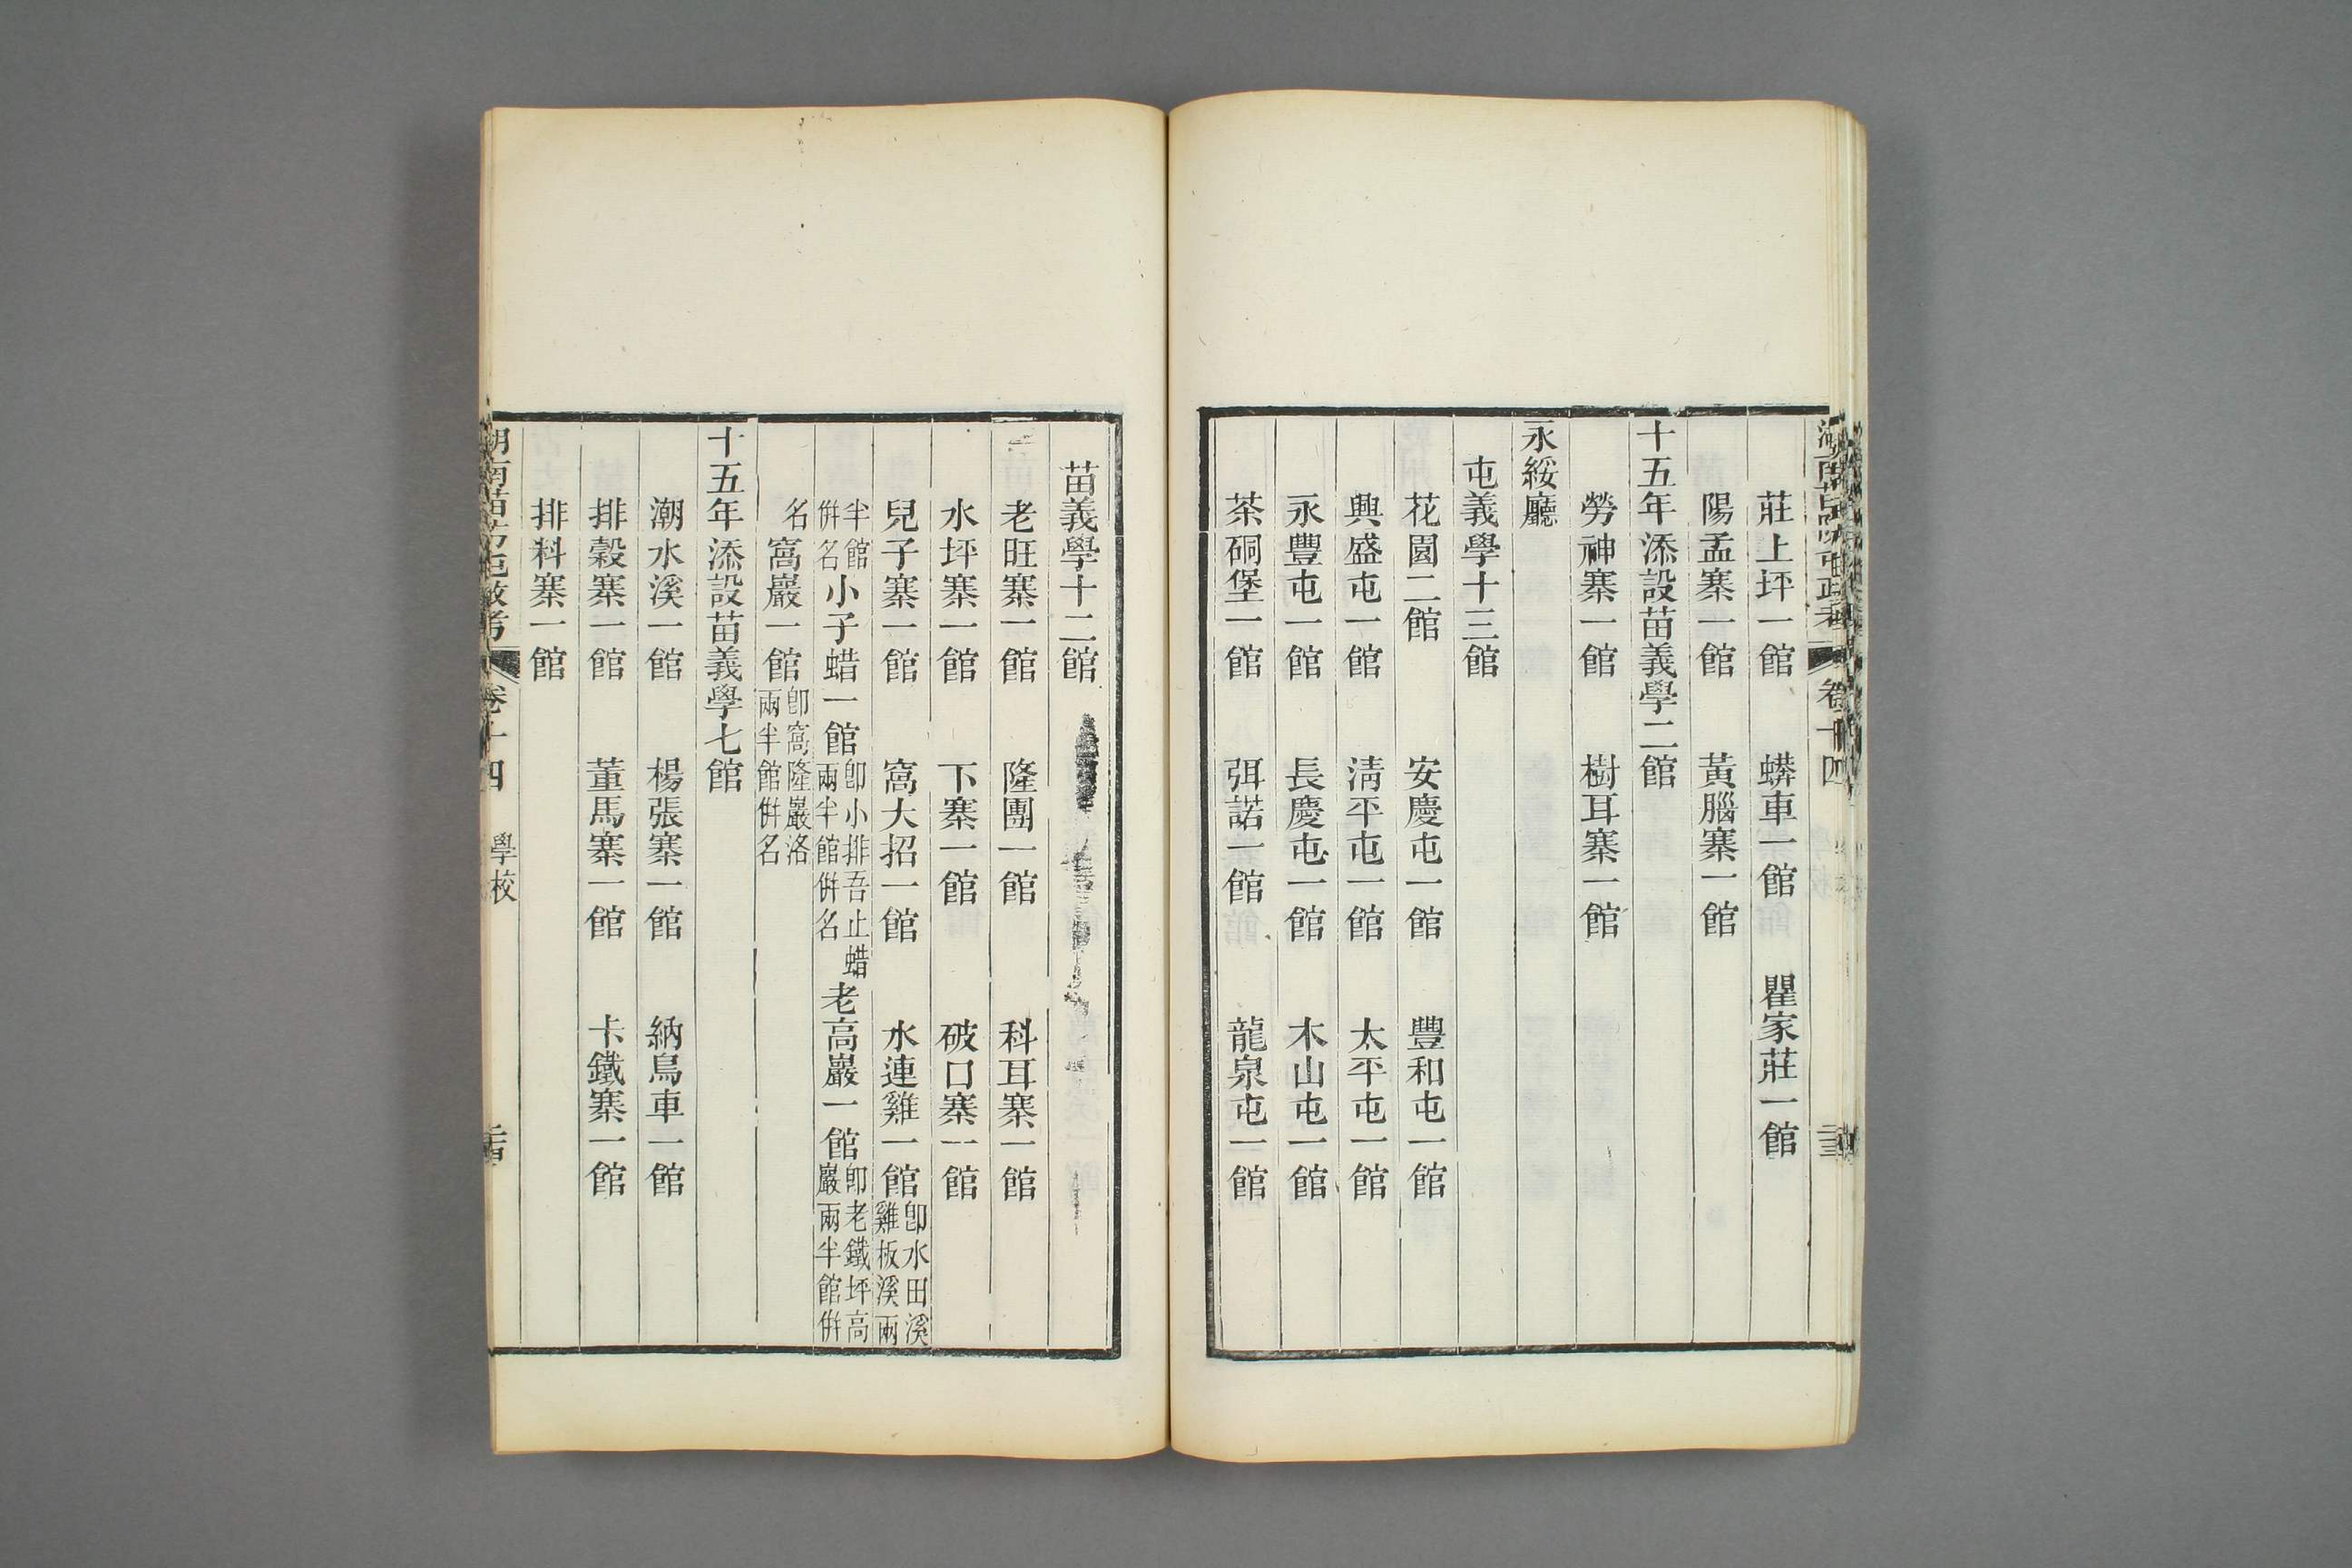 莊上坪一館 蟒車一館 瞿家莊一館
陽孟寨一館 黃腦寨一館
十五年添設苗義學二館
勞神寨一館 樹耳寨一館
永綏廳
屯義學十三館
花園二館 安慶屯一館 豐和屯一館
興盛屯一館 淸平屯一館 太平屯一館
永豐屯一館 長慶屯一館 木山屯一館
茶硐堡一館 弭諾一館 龍泉屯一館
苗義學十二館
老旺寨一館 隆團一館 科耳寨一館
水坪寨一館 下寨一館 破口寨一館
兒子寨一館 窩大招一館 水連雞一館卽水田溪雞板溪兩
半館倂名小子蜡一館卽小排吾止蜡兩半館倂名老高巖一館卽老鐵坪高巖兩半館倂
名窩巖一館卽窩隆巖洛兩半館倂名
十五年添設苗義學七館
潮水溪一館 楊張寨一館 納烏車一館
排糓寨一館 董馬寨一館 卡鐵寨一館
排料寨一館
湖南苗防屯政考 卷十四 學校